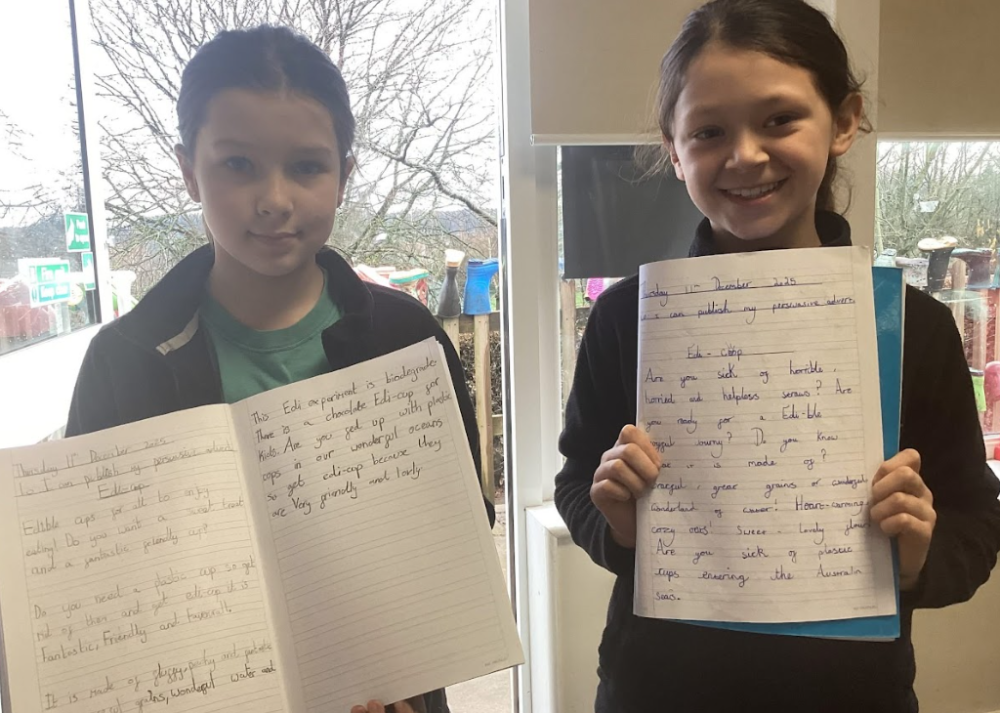 Thursday 11th December 2025
to I can publish my persuasive advert
Edi-cup
Edible cups for all to enjoy
eating! Do you want a sweet treat
and a fantastic friendly cup?
Do you need a plastic cup so get
rid of them and get edi-cup it is
Fantastic, Friendly and
It is made of and
grains, wonderful water and
This Edi experiment is biodegrade
There is a chocolate Edi-cup for
kids. Are you fed up with plastic
cups in our wonderful oceans
so get edi-cup because they
are Very friendly and lovly
11th December 2025
I can publish my persuasive advert
Edi-cup
Are you sick of horrible,
horried and helpless straws? Are
you ready for a Edi-ble
? Do you know
it is made of?
, great grains or wonderful
wonderland of ! Heart-warming
crazy oats! Sweet - lovely
Are you sick of plastic
cups entering the Australia
seas.